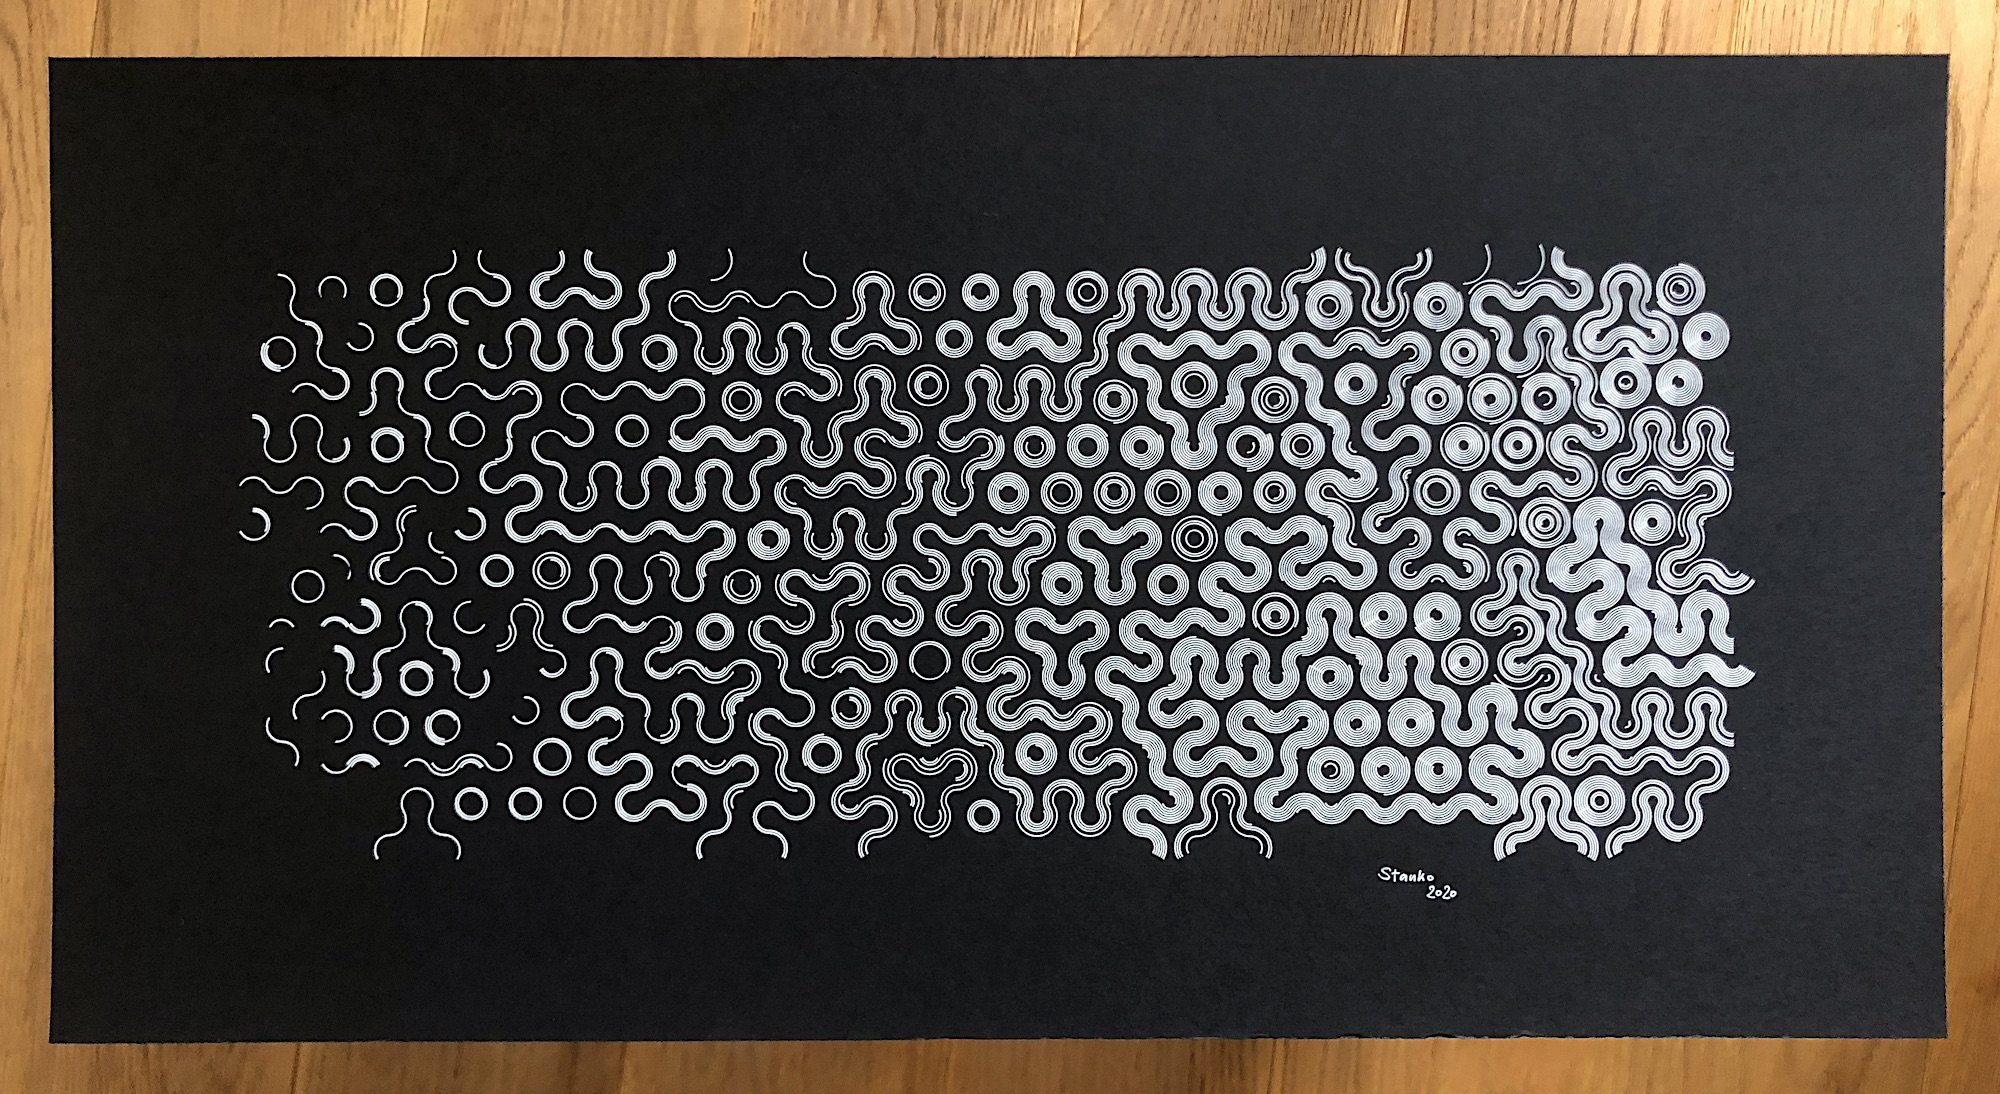 Stanko
2020